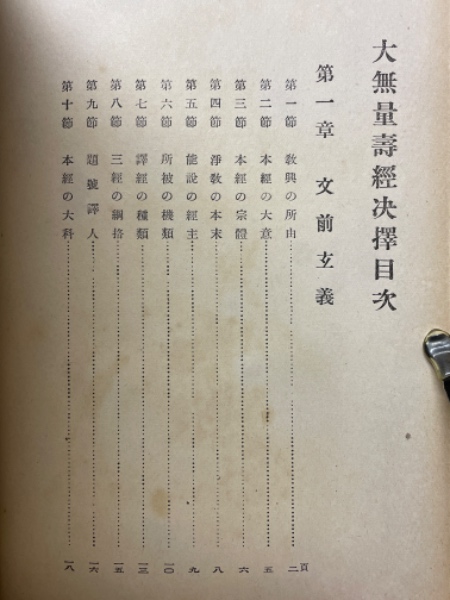 大無量壽經決擇目次
第一章 文前玄義
第一節 敎興の所由……二頁
第二節 本經の大意……五
第三節 本經の宗體……六
第四節 淨敎の本末……八
第五節 能說の經主……九
第六節 所被の機類……一〇
第七節 譯經の種類……一三
第八節 三經の綱格……一五
第九節 題號譯人……一六
第十節 本經の大科……一八